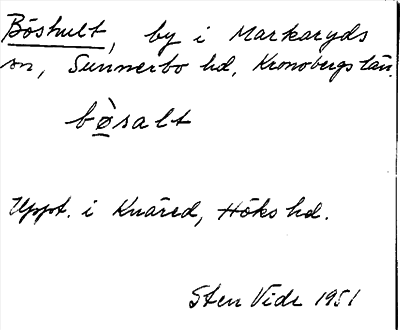 Böshult, by i Markaryds
sn, Sunnerbo hd, Kronobergs län.
bø̀salt
Uppt. i Knäred, Höks hd.
Sten Vide 1951